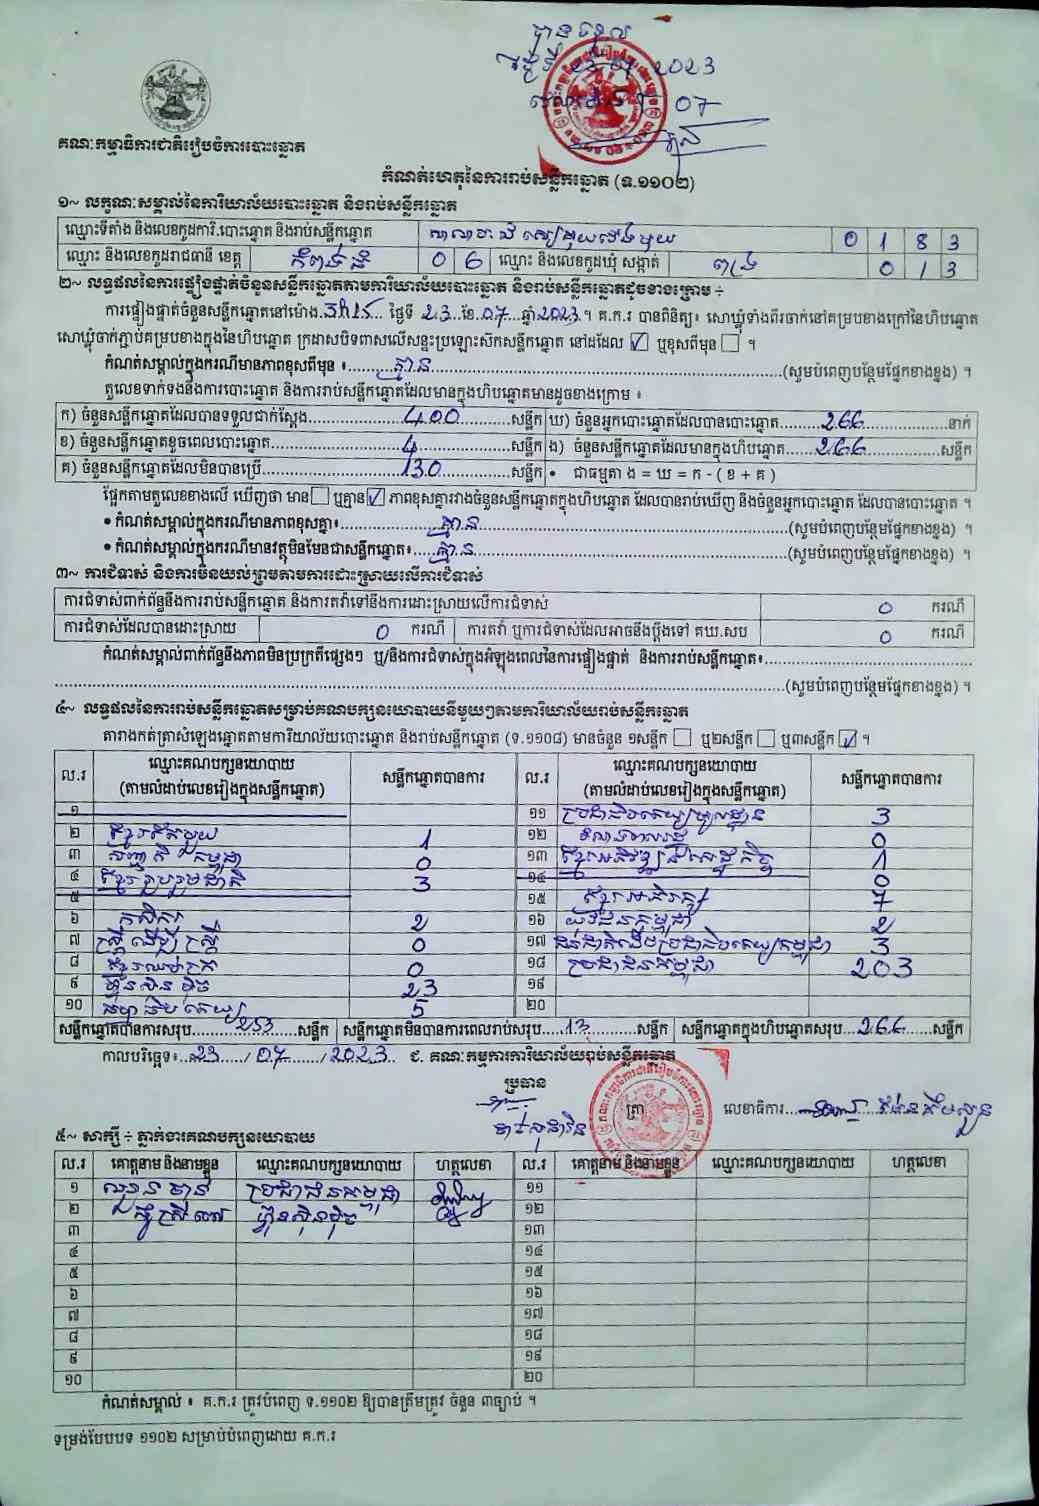 បានទទួល
ថ្ងៃទី 23 07 2023
07
គណៈកម្មាធិការជាតិរៀបចំការបោះឆ្នោត
កំណត់ហេតុនៃការរាប់សន្លឹកឆ្នោត (ទ.១១០២)
១~ លក្ខណៈសម្គាល់នៃការិយាល័យបោះឆ្នោត និងរាប់សន្លឹកឆ្នោត
ឈ្មោះទីតាំង និងលេខកូដការិ.បោះឆ្នោត និងរាប់សន្លឹកឆ្នោត 0 1 8 3
ឈ្មោះ និងលេខកូដរាជធានី ខេត្ត កំពង់ធំ 0 6 ឈ្មោះ និងលេខកូដឃុំ សង្កាត់ 0 1 3
២~ លទ្ធផលនៃការផ្ទៀងផ្ទាត់ចំនួនសន្លឹកឆ្នោតតាមការិយាល័យបោះឆ្នោត និងរាប់សន្លឹកឆ្នោតដូចខាងក្រោម ÷
ការផ្ទៀងផ្ទាត់ចំនួនសន្លឹកឆ្នោតនៅម៉ោង 3h25 ថ្ងៃទី 23 ខែ 07 ឆ្នាំ 2023 ។ គ.ក.រ បានពិនិត្យ៖ សោឃ្លុំទាំងពីរចាក់នៅគម្របខាងក្រៅនៃហិបឆ្នោត
សោឃ្លុំចាក់ភ្ជាប់គម្របខាងក្នុងនៃហិបឆ្នោត ក្រដាសបិទពាសលើសន្ទះប្រឡោះស៊កសន្លឹកឆ្នោត នៅដដែល ☑ ឬខុសពីមុន ☐ ។
កំណត់សម្គាល់ក្នុងករណីមានភាពខុសពីមុន ៖ គ្មាន (សូមបំពេញបន្ថែមផ្នែកខាងខ្នង) ។
តួលេខទាក់ទងនឹងការបោះឆ្នោត និងការរាប់សន្លឹកឆ្នោតដែលមានក្នុងហិបឆ្នោតមានដូចខាងក្រោម ៖
ក) ចំនួនសន្លឹកឆ្នោតដែលបានទទួលជាក់ស្ដែង 400 សន្លឹក ឃ) ចំនួនអ្នកបោះឆ្នោតដែលបានបោះឆ្នោត 266 នាក់
ខ) ចំនួនសន្លឹកឆ្នោតខូចពេលបោះឆ្នោត 4 សន្លឹក ង) ចំនួនសន្លឹកឆ្នោតដែលមានក្នុងហិបឆ្នោត 266 សន្លឹក
គ) ចំនួនសន្លឹកឆ្នោតដែលមិនបានប្រើ 130 សន្លឹក • ជាធម្មតា ង = ឃ = ក - ( ខ + គ )
ផ្អែកតាមតួលេខខាងលើ ឃើញថា មាន ☐ ឬគ្មាន ☑ ភាពខុសគ្នារវាងចំនួនសន្លឹកឆ្នោតក្នុងហិបឆ្នោត ដែលបានរាប់ឃើញ និងចំនួនអ្នកបោះឆ្នោត ដែលបានបោះឆ្នោត ។
• កំណត់សម្គាល់ក្នុងករណីមានភាពខុសគ្នា៖ គ្មាន (សូមបំពេញបន្ថែមផ្នែកខាងខ្នង) ។
• កំណត់សម្គាល់ក្នុងករណីមានវត្ថុមិនមែនជាសន្លឹកឆ្នោត៖ គ្មាន (សូមបំពេញបន្ថែមផ្នែកខាងខ្នង) ។
៣~ ការជំទាស់ និងការមិនយល់ព្រមតាមការដោះស្រាយលើការជំទាស់
ការជំទាស់ពាក់ព័ន្ធនឹងការរាប់សន្លឹកឆ្នោត និងការតវ៉ាទៅនឹងការដោះស្រាយលើការជំទាស់ 0 ករណី
ការជំទាស់ដែលបានដោះស្រាយ 0 ករណី ការតវ៉ា ឬការជំទាស់ដែលអាចនឹងប្ដឹងទៅ គឃ.សប 0 ករណី
កំណត់សម្គាល់ពាក់ព័ន្ធនឹងភាពមិនប្រក្រតីផ្សេងៗ ឬ/និងការជំទាស់ក្នុងអំឡុងពេលនៃការផ្ទៀងផ្ទាត់ និងការរាប់សន្លឹកឆ្នោត៖
(សូមបំពេញបន្ថែមផ្នែកខាងខ្នង) ។
៤~ លទ្ធផលនៃការរាប់សន្លឹកឆ្នោតសម្រាប់គណបក្សនយោបាយនីមួយៗតាមការិយាល័យរាប់សន្លឹកឆ្នោត
តារាងកត់ត្រាសំឡេងឆ្នោតតាមការិយាល័យបោះឆ្នោត និងរាប់សន្លឹកឆ្នោត (ទ.១១០៨) មានចំនួន ១សន្លឹក ☐ ឬ២សន្លឹក ☐ ឬ៣សន្លឹក ☑ ។
ល.រ ឈ្មោះគណបក្សនយោបាយ (តាមលំដាប់លេខរៀងក្នុងសន្លឹកឆ្នោត) សន្លឹកឆ្នោតបានការ ល.រ ឈ្មោះគណបក្សនយោបាយ (តាមលំដាប់លេខរៀងក្នុងសន្លឹកឆ្នោត) សន្លឹកឆ្នោតបានការ
១ ១១ ប្រជាធិបតេយ្យមូលដ្ឋាន 3
២ ខ្មែរតែមួយ 1 ១២ 0
៣ សញ្ជាតិកម្ពុជា 0 ១៣ ខ្មែរអភិវឌ្ឍន៍សេដ្ឋកិច្ច 1
៤ ខ្មែររួបរួមជាតិ 3 ១៤ 0
៥ ១៥ ខ្មែរអភិរក្ស 7
៦ កសិករ 2 ១៦ យុវជនកម្ពុជា 2
៧ ស្ត្រីដើម្បីស្ត្រី 0 ១៧ ជនជាតិដើមប្រជាធិបតេយ្យកម្ពុជា 3
៨ 0 ១៨ ប្រជាជនកម្ពុជា 203
៩ ហ្វ៊ុនស៊ិនប៉ិច 23 ១៩
១០ ធម្មាធិបតេយ្យ 5 ២០
សន្លឹកឆ្នោតបានការសរុប 253 សន្លឹក សន្លឹកឆ្នោតមិនបានការពេលរាប់សរុប 13 សន្លឹក សន្លឹកឆ្នោតក្នុងហិបឆ្នោតសរុប 266 សន្លឹក
កាលបរិច្ឆេទ៖ 23 / 07 / 2023 ជ. គណៈកម្មការការិយាល័យរាប់សន្លឹកឆ្នោត
ប្រធាន
ត្រា លេខាធិការ
៥~ សាក្សី ÷ ភ្នាក់ងារគណបក្សនយោបាយ
ល.រ គោត្តនាម និងនាមខ្លួន ឈ្មោះគណបក្សនយោបាយ ហត្ថលេខា ល.រ គោត្តនាម និងនាមខ្លួន ឈ្មោះគណបក្សនយោបាយ ហត្ថលេខា
១ ប្រជាជនកម្ពុជា ១១
២ ហ្វ៊ុនស៊ិនប៉ិច ១២
៣ ១៣
៤ ១៤
៥ ១៥
៦ ១៦
៧ ១៧
៨ ១៨
៩ ១៩
១០ ២០
កំណត់សម្គាល់ ៖ គ.ក.រ ត្រូវបំពេញ ទ.១១០២ ឱ្យបានត្រឹមត្រូវ ចំនួន ៣ច្បាប់ ។
ទម្រង់បែបបទ ១១០២ សម្រាប់បំពេញដោយ គ.ក.រ